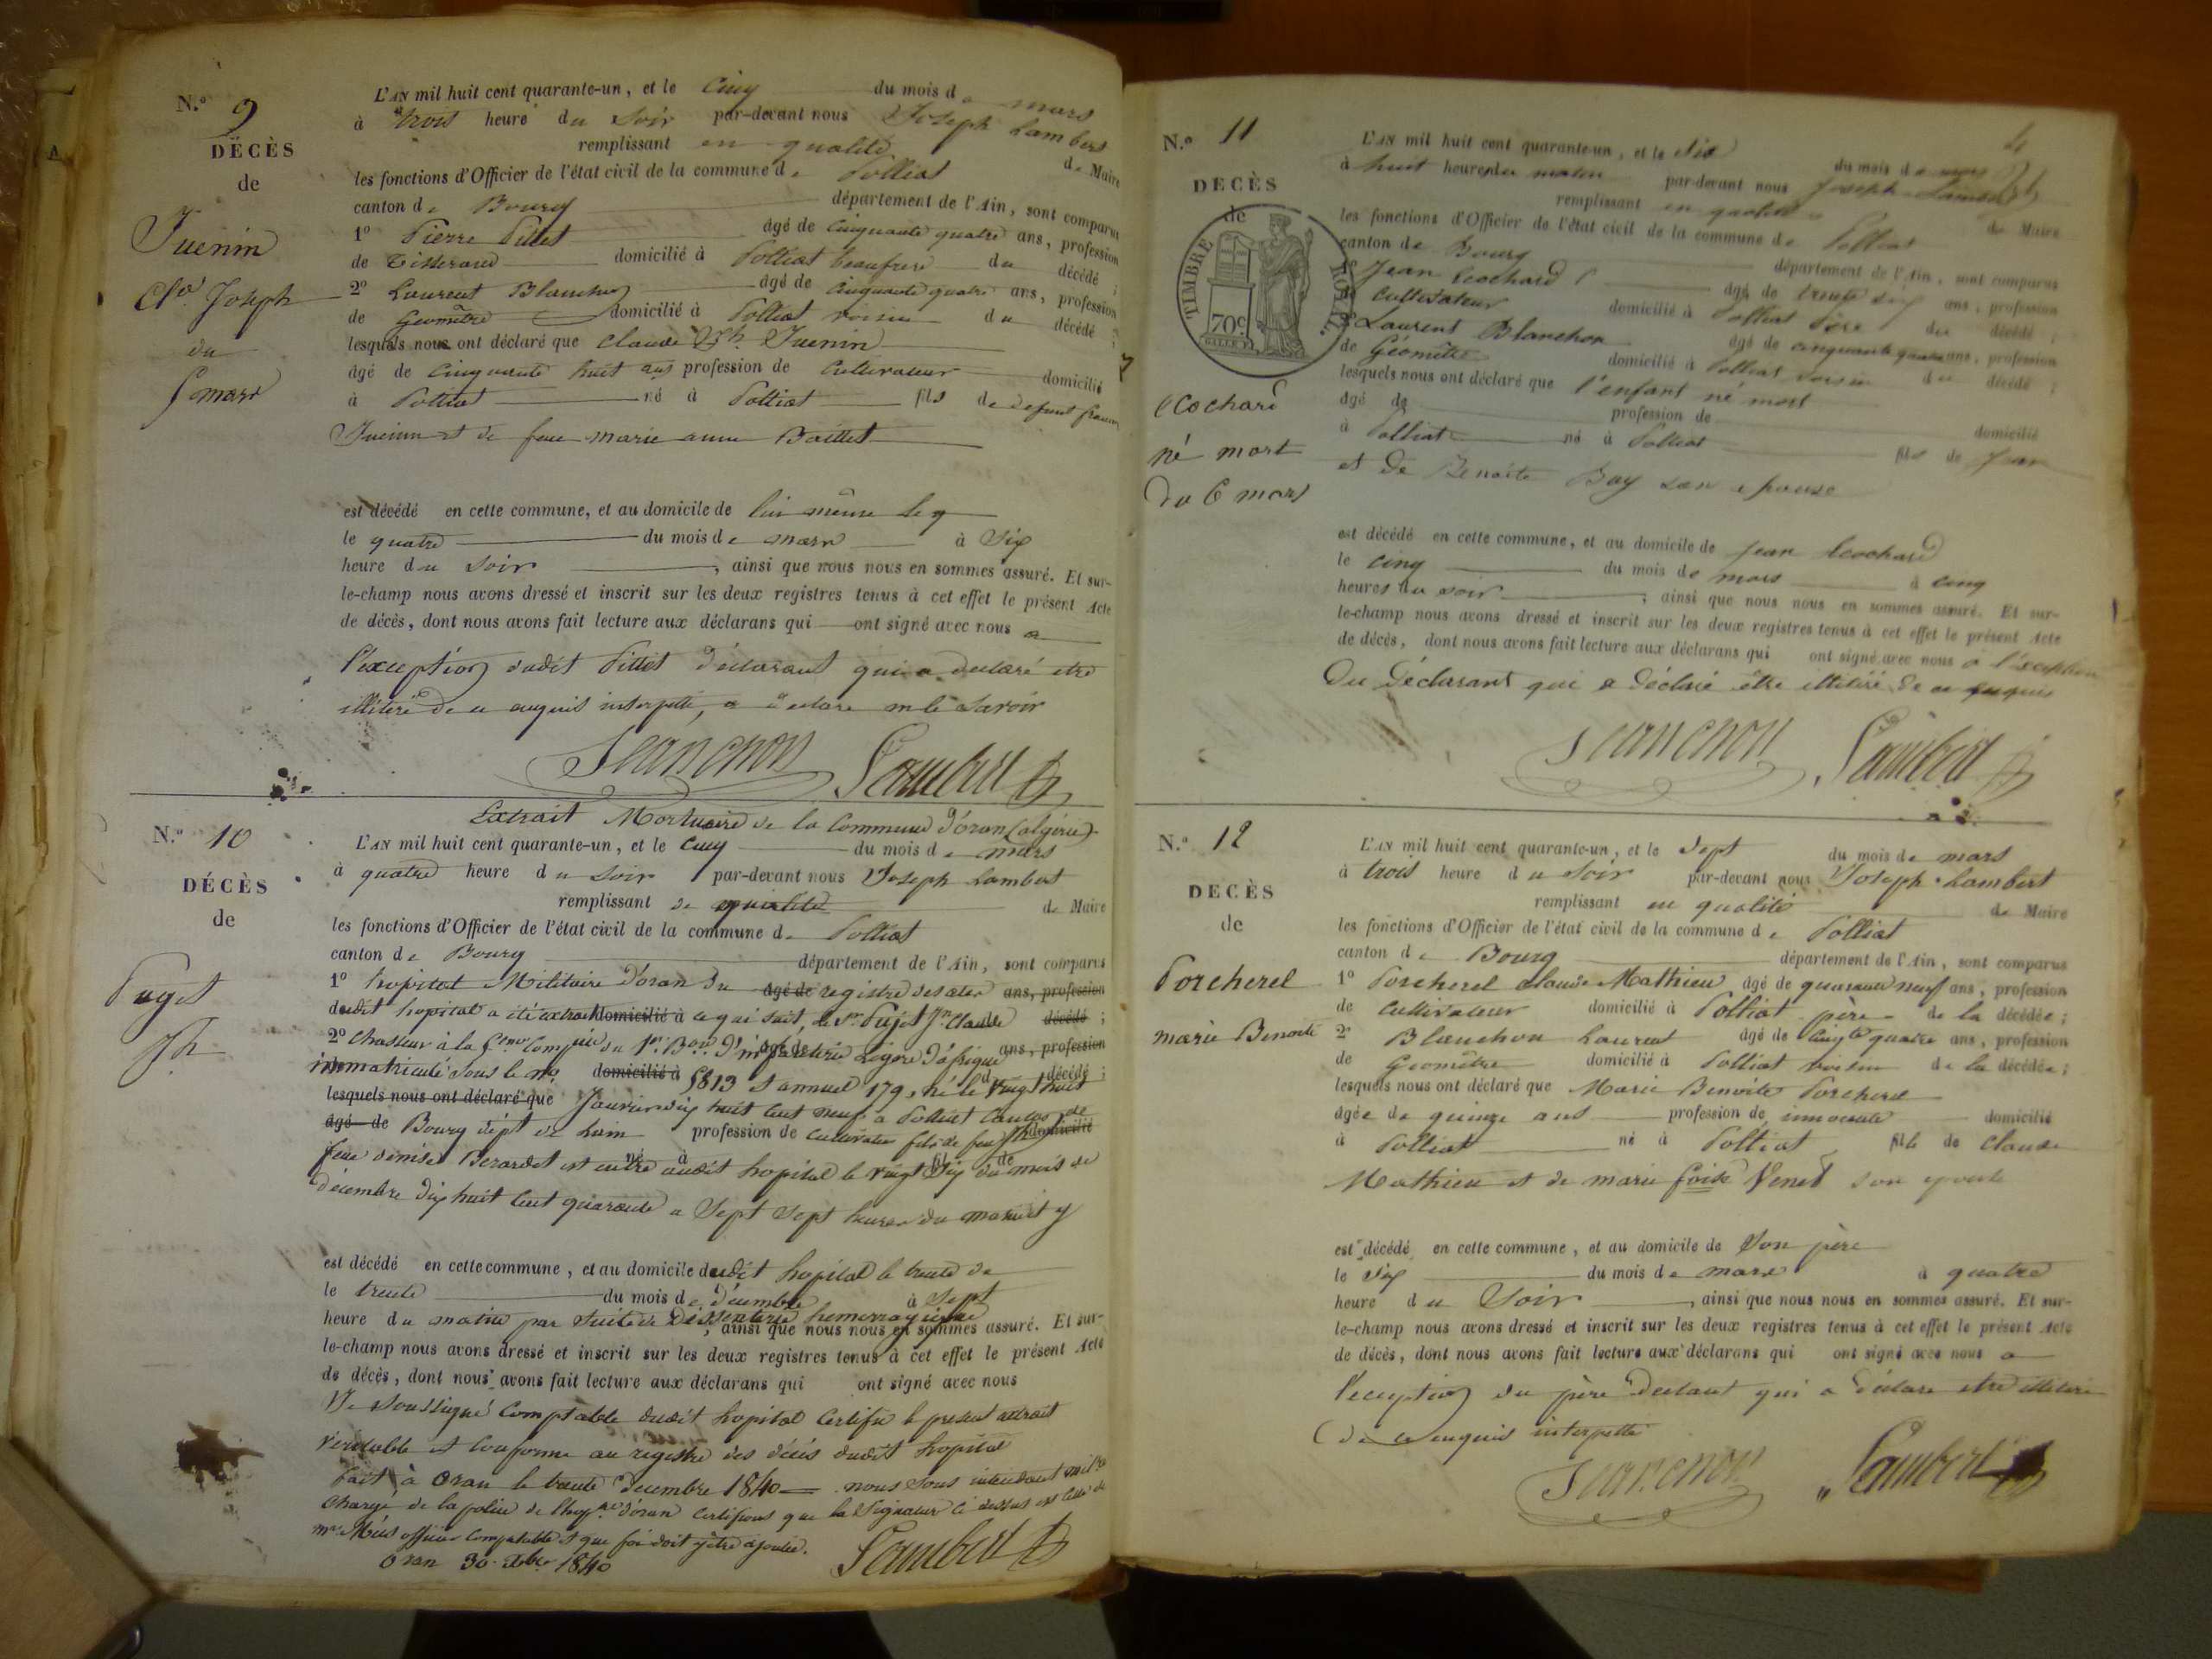 N.º 9
DÉCÈS
de
Juenin
Cl.de Joseph
du
5 mars
L'AN mil huit cent quarante-un, et le cinq du mois de mars
à trois heure du soir par-devant nous Joseph Lambert
remplissant en qualité de Maire
les fonctions d'Officier de l'état civil de la commune de Polliat
canton de Bourg département de l'Ain, sont comparus
1º Pierre Pillet âgé de cinquante quatre ans, profession
de Tisserand domicilié à Polliat beaufrere du décédé;
2º Laurent Blanchon âgé de cinquante quatre ans, profession
de Geomêtre domicilié à Polliat voisin du décédé;
lesquels nous ont déclaré que Claude Jph. Juenin
âgé de cinquante huit ans profession de cultivateur domicilié
à Polliat né à Polliat fils de defunt
Juenin et de feue marie anne Baillet
est décédé en cette commune, et au domicile de lui même
le quatre du mois de mars à Six
heure du soir, ainsi que nous nous en sommes assuré. Et sur-
le-champ nous avons dressé et inscrit sur les deux registres tenus à cet effet le présent Acte
de décès, dont nous avons fait lecture aux déclarans qui ont signé avec nous a
l'exception dudit Pillet déclarant qui a declaré etre
illitéré de ce enquis interpellé, a declaré ne le savoir
Lambert
N.º 10
DÉCÈS
de
Puget
Jh
Extrait Mortuaire de la commune d'oran (algérie)
L'AN mil huit cent quarante-un, et le cinq du mois de mars
à quatre heure du soir par-devant nous Joseph Lambert
remplissant de qualité de Maire
les fonctions d'Officier de l'état civil de la commune de Polliat
canton de Bourg département de l'Ain, sont comparus
1º hopital Militaire d'oran Du âgé de registre des ans, profession
dudit hopital a été extrait domicilié à ce qui suit, le Sr. Pujet Jn. Claude décédé;
2º Chasseur à la Compie du 1er. Bon. D'infanterie Légère d'afrique âgé de ans, profession
immatriculé sous le no. domicilié à 5813 et annuel 179, né le vingt huit décédé;
lesquels nous ont déclaré que Janvier dix huit cent neuf à Polliat canton de
âgé de Bourg dépt de Lain profession de cultivateur fils de feu Jh domicilié
feue denise Berardet est entré audit hopital le vingt Six du mois de
décembre dix huit cent quarante a Sept Sept heures du matin et y
est décédé en cette commune, et au domicile dudit hopital le trente de
le trente du mois de décembre à Sept
heure du matin par suite de Dissenterie hemorragique, ainsi que nous nous en sommes assuré. Et sur-
le-champ nous avons dressé et inscrit sur les deux registres tenus à cet effet le présent Acte
de décès, dont nous avons fait lecture aux déclarans qui ont signé avec nous
Je Soussigné Comptable dudit hopital Certifie le present extrait
véritable et conforme au registre des décés dudit hopital
fait à Oran le trente decembre 1840 nous Sous intendant milre
chargé de la police de l'hopal d'oran certifions que la Signature ci dessus est celle de
mr. officier comptable et que foi doit y être ajoutée.
Oran 30 xbre 1840
Lambert
N.º 11
DECÈS
de
TIMBRE ROYAL
70c
Ecochard
né mort
du 6 mars
L'AN mil huit cent quarante-un, et le six du mois de mars
à huit heures du matin par-devant nous Joseph Lambert
remplissant en qualité de Maire
les fonctions d'Officier de l'état civil de la commune de Polliat
canton de Bourg département de l'Ain, sont comparus
1º Jean Ecochard âgé de trente six ans, profession
de cultivateur domicilié à Polliat Père du décédé;
2º Laurent Blanchon âgé de cinquante quatre ans, profession
de Géomêtre domicilié à Polliat voisin du décédé;
lesquels nous ont déclaré que l'enfant né mort
âgé de profession de domicilié
à Polliat né à Polliat fils de Jean
et de Benoite Bay son epouse
est décédé en cette commune, et au domicile de Jean Ecochard
le cinq du mois de mars à cinq
heures du soir, ainsi que nous nous en sommes assuré. Et sur-
le-champ nous avons dressé et inscrit sur les deux registres tenus à cet effet le présent Acte
de décès, dont nous avons fait lecture aux déclarans qui ont signé avec nous à l'exception
Du Déclarant qui a déclaré être illitéré de ce enquis
Lambert
N.º 12
DECÈS
de
Porcherel
marie Benoite
L'AN mil huit cent quarante-un, et le sept du mois de mars
à trois heure du Soir par-devant nous Joseph Lambert
remplissant en qualité de Maire
les fonctions d'Officier de l'état civil de la commune de Polliat
canton de Bourg département de l'Ain, sont comparus
1º Porcherel claude Mathieu âgé de quarante neuf ans, profession
de cultivateur domicilié à Polliat père de la décédée;
2º Blanchon Laurent âgé de cinqte quatre ans, profession
de Geomêtre domicilié à Polliat voisin de la décédée;
lesquels nous ont déclaré que Marie Benoite Porcherel
âgée de quinze ans profession de innocente domicilié
à Polliat né à Polliat fille de Claude
Mathieu et de marie foise Venet son epouse
est décédé en cette commune, et au domicile de Son père
le Six du mois de mars à quatre
heure du Soir, ainsi que nous nous en sommes assuré. Et sur-
le-champ nous avons dressé et inscrit sur les deux registres tenus à cet effet le présent Acte
de décès, dont nous avons fait lecture aux déclarans qui ont signé avec nous a
l'exception du père Declarant qui a déclaré etre illitéré
de ce enquis interpellé
Lambert